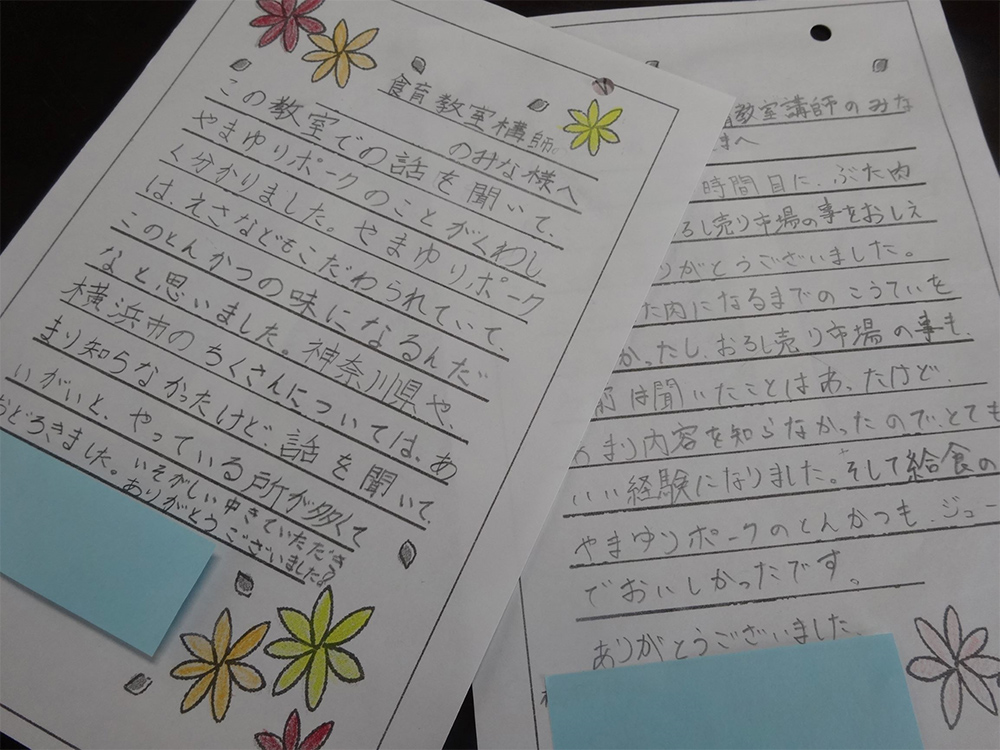 食育教室構師。
のみな様へ
この教室での話を聞いて、
やまゆりポークのことがくわし
く分かりました。やまゆりポーク
は、えさなどもこだわられていて、
このとんかつの味になるんだ
なと思いました。神奈川県や、
横浜市のちくさんについては、あ
まり知らなかったけど、話を聞いて、
いがいと、やっている所が多くて
おどろきました。いそがしい中きていただき
ありがとうございました!
教室講師のみな
へ
時間目に、ぶた肉
ろし売り市場の事をおしえ
がとうございました。
た肉になるまでのこうていを
かったし、おろし売り市場の事も、
は聞いたことはあったけど、
まり内容を知らなかったので、とても
いい経験になりました。そして給食の
やまゆりポークのとんかつも、ジュー
でおいしかったです。
ありがとうございました。